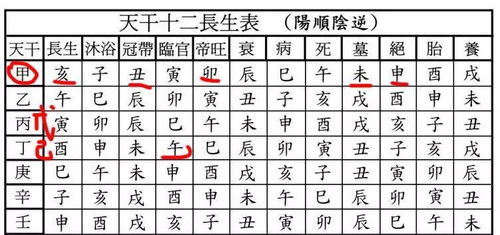 天干十二長生表 (陽順陰逆)
天干 長生 沐浴 冠帶 臨官 帝旺 衰 病 死 墓 絕 胎 養
甲 亥 子 丑 寅 卯 辰 巳 午 未 申 酉 戌
乙 午 巳 辰 卯 寅 丑 子 亥 戌 酉 申 未
丙 戊 寅 卯 辰 巳 午 未 申 酉 戌 亥 子 丑
丁 己 酉 申 未 午 巳 辰 卯 寅 丑 子 亥 戌
庚 巳 午 未 申 酉 戌 亥 子 丑 寅 卯 辰
辛 子 亥 戌 酉 申 未 午 巳 辰 卯 寅 丑
壬 申 酉 戌 亥 子 丑 寅 卯 辰 巳 午 未